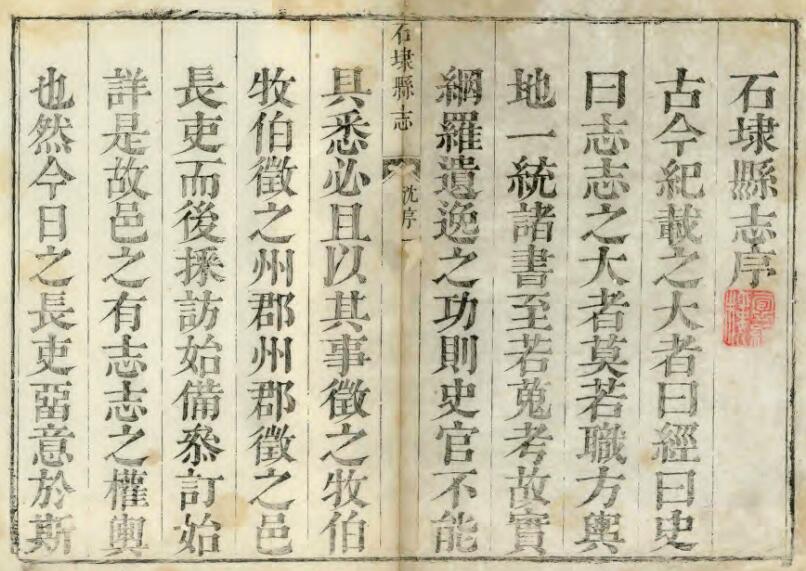 石埭縣志序
古今紀載之大者曰經曰史
曰志志之大者莫若職方輿
地一統諸書至若蒐考故實
網羅遺逸之功則史官不能
石埭縣志
沈序
一
具悉必且以其事徵之牧伯
牧伯徵之州郡州郡徵之邑
長吏而後採訪始備叅訂始
詳是故邑之有志志之權輿
也然今日之長吏畱意於斯